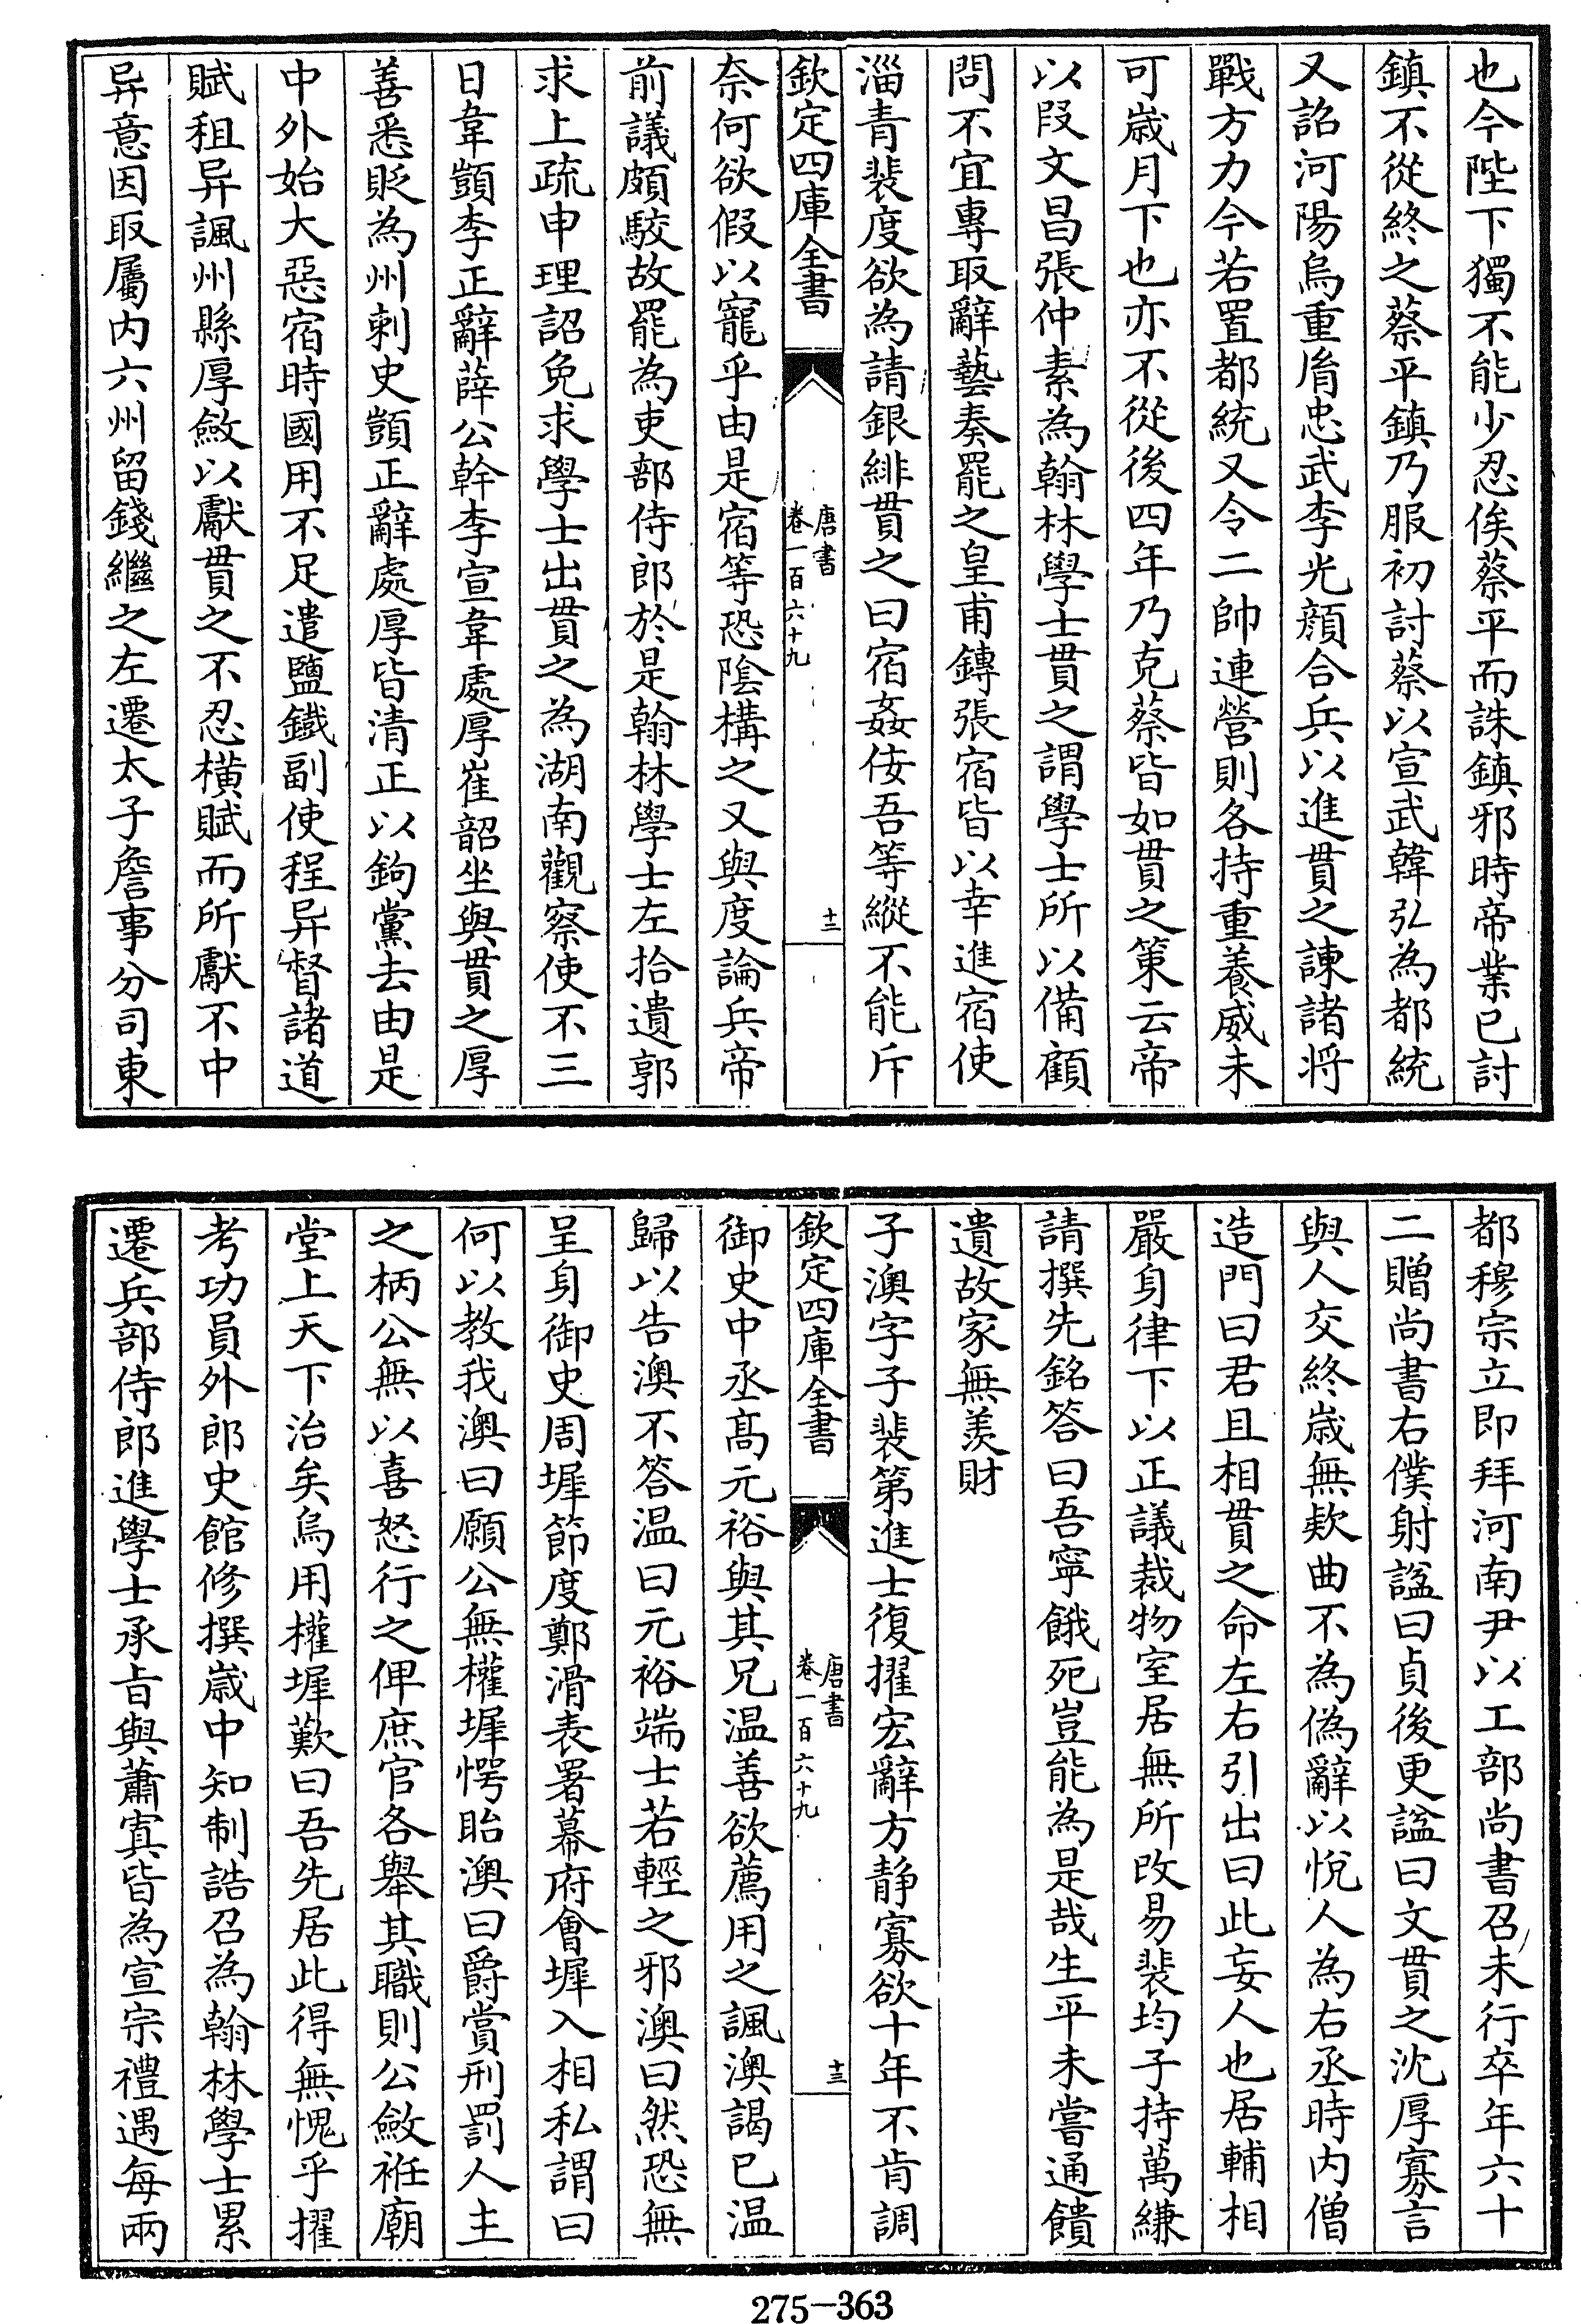 也今陛下獨不能少忍俟蔡平而誅鎮邪時帝業已討
鎮不從終之蔡平鎮乃服初討蔡以宣武韓弘為都統
又詔河陽烏重胤忠武李光顔合兵以進貫之諫諸将
戰方力今若置都統又令二帥連營則各持重養威未
可歳月下也亦不從後四年乃克蔡皆如貫之策云帝
以段文昌張仲素為翰林學士貫之謂學士所以備顧
問不宜專取辭藝奏罷之皇甫鎛張宿皆以幸進宿使
淄青裴度欲為請銀緋貫之曰宿姦佞吾等縱不能斥
欽定四庫全書
唐書
卷一百六十九
十二
奈何欲假以寵乎由是宿等恐陰構之又與度論兵帝
前議頗駮故罷為吏部侍郎於是翰林學士左拾遺郭
求上疏申理詔免求學士出貫之為湖南觀察使不三
日韋顗李正辭薛公幹李宣韋處厚崔韶坐與貫之厚
善悉貶為州刺史顗正辭處厚皆清正以鉤黨去由是
中外始大惡宿時國用不足遣鹽鐵副使程异督諸道
賦租异諷州縣厚斂以獻貫之不忍橫賦而所獻不中
异意因取屬内六州留錢繼之左遷太子詹事分司東
都穆宗立即拜河南尹以工部尚書召未行卒年六十
二贈尚書右僕射諡曰貞後更諡曰文貫之沈厚寡言
與人交終歳無款曲不為偽辭以悅人為右丞時内僧
造門曰君且相貫之命左右引出曰此妄人也居輔相
嚴身律下以正議裁物室居無所改易裴均子持萬縑
請撰先銘答曰吾寧餓死豈能為是哉生平未嘗通饋
遺故家無羨財
子澳字子裴第進士復擢宏辭方静寡欲十年不肯調
欽定四庫全書
唐書
卷一百六十九
十三
御史中丞髙元裕與其兄温善欲薦用之諷澳謁已温
歸以告澳不答温曰元裕端士若輕之邪澳曰然恐無
呈身御史周墀節度鄭滑表署幕府會墀入相私謂曰
何以教我澳曰願公無權墀愕眙澳曰爵賞刑罰人主
之柄公無以喜怒行之俾庶官各舉其職則公斂袵廟
堂上天下治矣烏用權墀歎曰吾先居此得無愧乎擢
考功員外郎史館修撰歳中知制誥召為翰林學士累
遷兵部侍郎進學士承旨與蕭寘皆為宣宗禮遇每兩
275-363